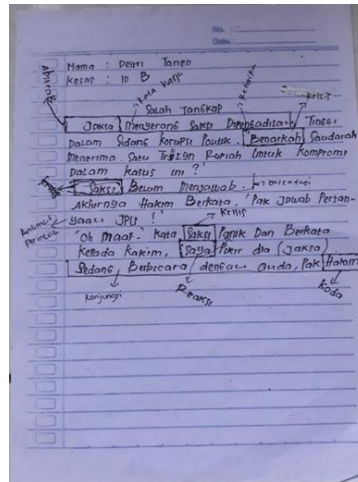 No:
Date:
Nama : Deswi Taneo
Kelas : 10 B
Abstrak
Kata Kerja
Salah Tangkap
Krisis
Jaksa Menyerang Saksi Dipengadilan Tinggi
Dalam Sidang Korupsi Politik. "Benarkah Saudarah
Menerima Satu Triliyn Rupiah Untuk Kompromi
Dalam Kasus ini ?"
Saksi Belum Menjawab. Orientasi
Akhirnya Hakim Berkata, "Pak Jawab Pertan-
yaan JPU !"
Kalimat Perintah
Krisis
"Oh Maaf." Kata Saksi Panik Dan Berkata
Kepada Hakim, "Saya Pikir dia (Jaksa)
Sedang Berbicara dengan anda, Pak Hakim
Konjungsi
Reaksi
Koda